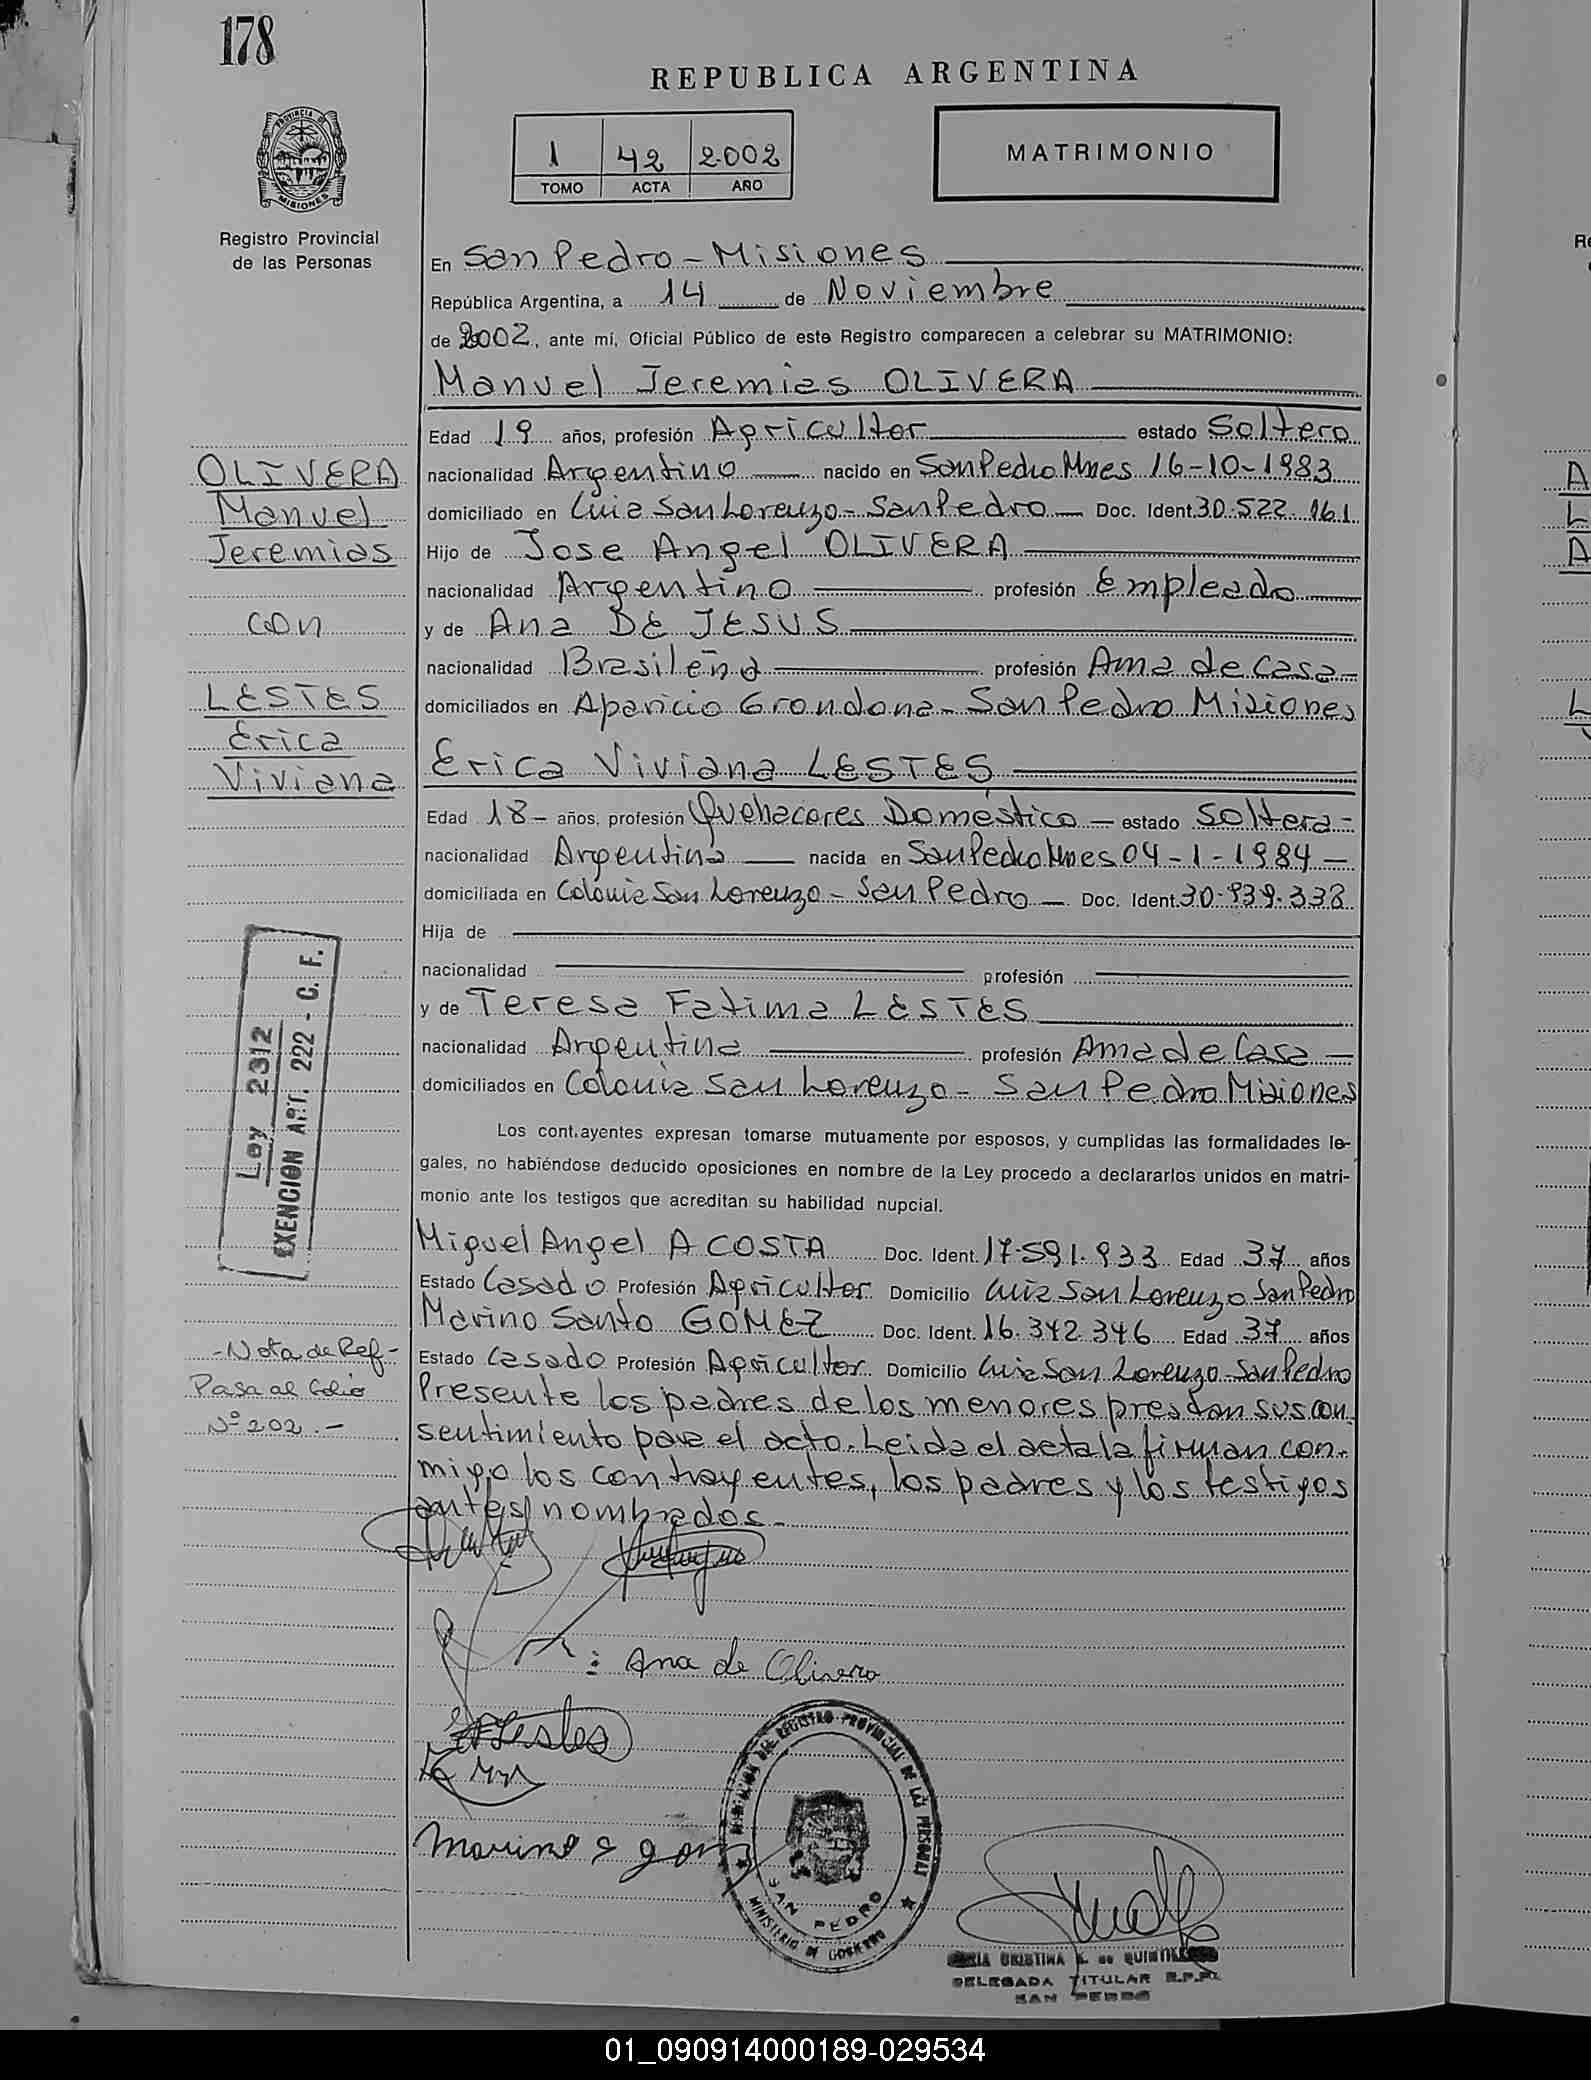 178
REPUBLICA ARGENTINA
1 42 2002
TOMO ACTA AÑO
MATRIMONIO
PROVINCIA DE
MISIONES
Registro Provincial
de las Personas
En San Pedro - Misiones
República Argentina, a 14 de Noviembre
de 2002, ante mí, Oficial Público de este Registro comparecen a celebrar su MATRIMONIO:
Manuel Jeremias OLIVERA
Edad 19 años, profesión Agricultor estado Soltero
nacionalidad Argentino nacido en San Pedro Mnes 16-10-1983
domiciliado en Cnia San Lorenzo - San Pedro - Doc. Ident. 30.522.161
Hijo de Jose Angel OLIVERA
nacionalidad Argentino profesión Empleado
y de Ana DE JESUS
nacionalidad Brasileña profesión Ama de Casa -
domiciliados en Aparicio Grondona - San Pedro Misiones
Erica Viviana LESTES
Edad 18 - años, profesión Quehaceres Doméstico - estado Soltera -
nacionalidad Argentina nacida en San Pedro Mnes 04-1-1984 -
domiciliada en Colonia San Lorenzo - San Pedro - Doc. Ident. 30.939.338
Hija de
nacionalidad profesión
y de Teresa Fatima LESTES
nacionalidad Argentina profesión Ama de Casa -
domiciliados en Colonia San Lorenzo - San Pedro Misiones
Los contrayentes expresan tomarse mutuamente por esposos, y cumplidas las formalidades le-
gales, no habiéndose deducido oposiciones en nombre de la Ley procedo a declararlos unidos en matri-
monio ante los testigos que acreditan su habilidad nupcial.
Miguel Angel ACOSTA Doc. Ident. 17.591.933 Edad 37 años
Estado Casado Profesión Agricultor Domicilio Cnia San Lorenzo San Pedro
Marino Santo GOMEZ Doc. Ident. 16.342.346 Edad 37 años
Estado Casado Profesión Agricultor Domicilio Cnia San Lorenzo - San Pedro
Presente los padres de los menores prestan su con
sentimiento para el acto. Leida el acta la firman con-
migo los contrayentes, los padres y los testigos
antes nombrados.-
OLIVERA
Manuel
Jeremias
con
LESTES
Erica
Viviana
Ley 2312
EXENCION ART. 222 - C. F.
- Nota de Ref -
Pasa al Folio
Nº 202.-
: Ana de Olivera
Lestes
Marino S gomez
DELEGACION DEL REGISTRO PROVINCIAL DE LAS PERSONAS
SAN PEDRO
MINISTERIO DE GOBIERNO
MARIA CRISTINA de
DELEGADA TITULAR R.P.P.
SAN PEDRO
01_090914000189-029534